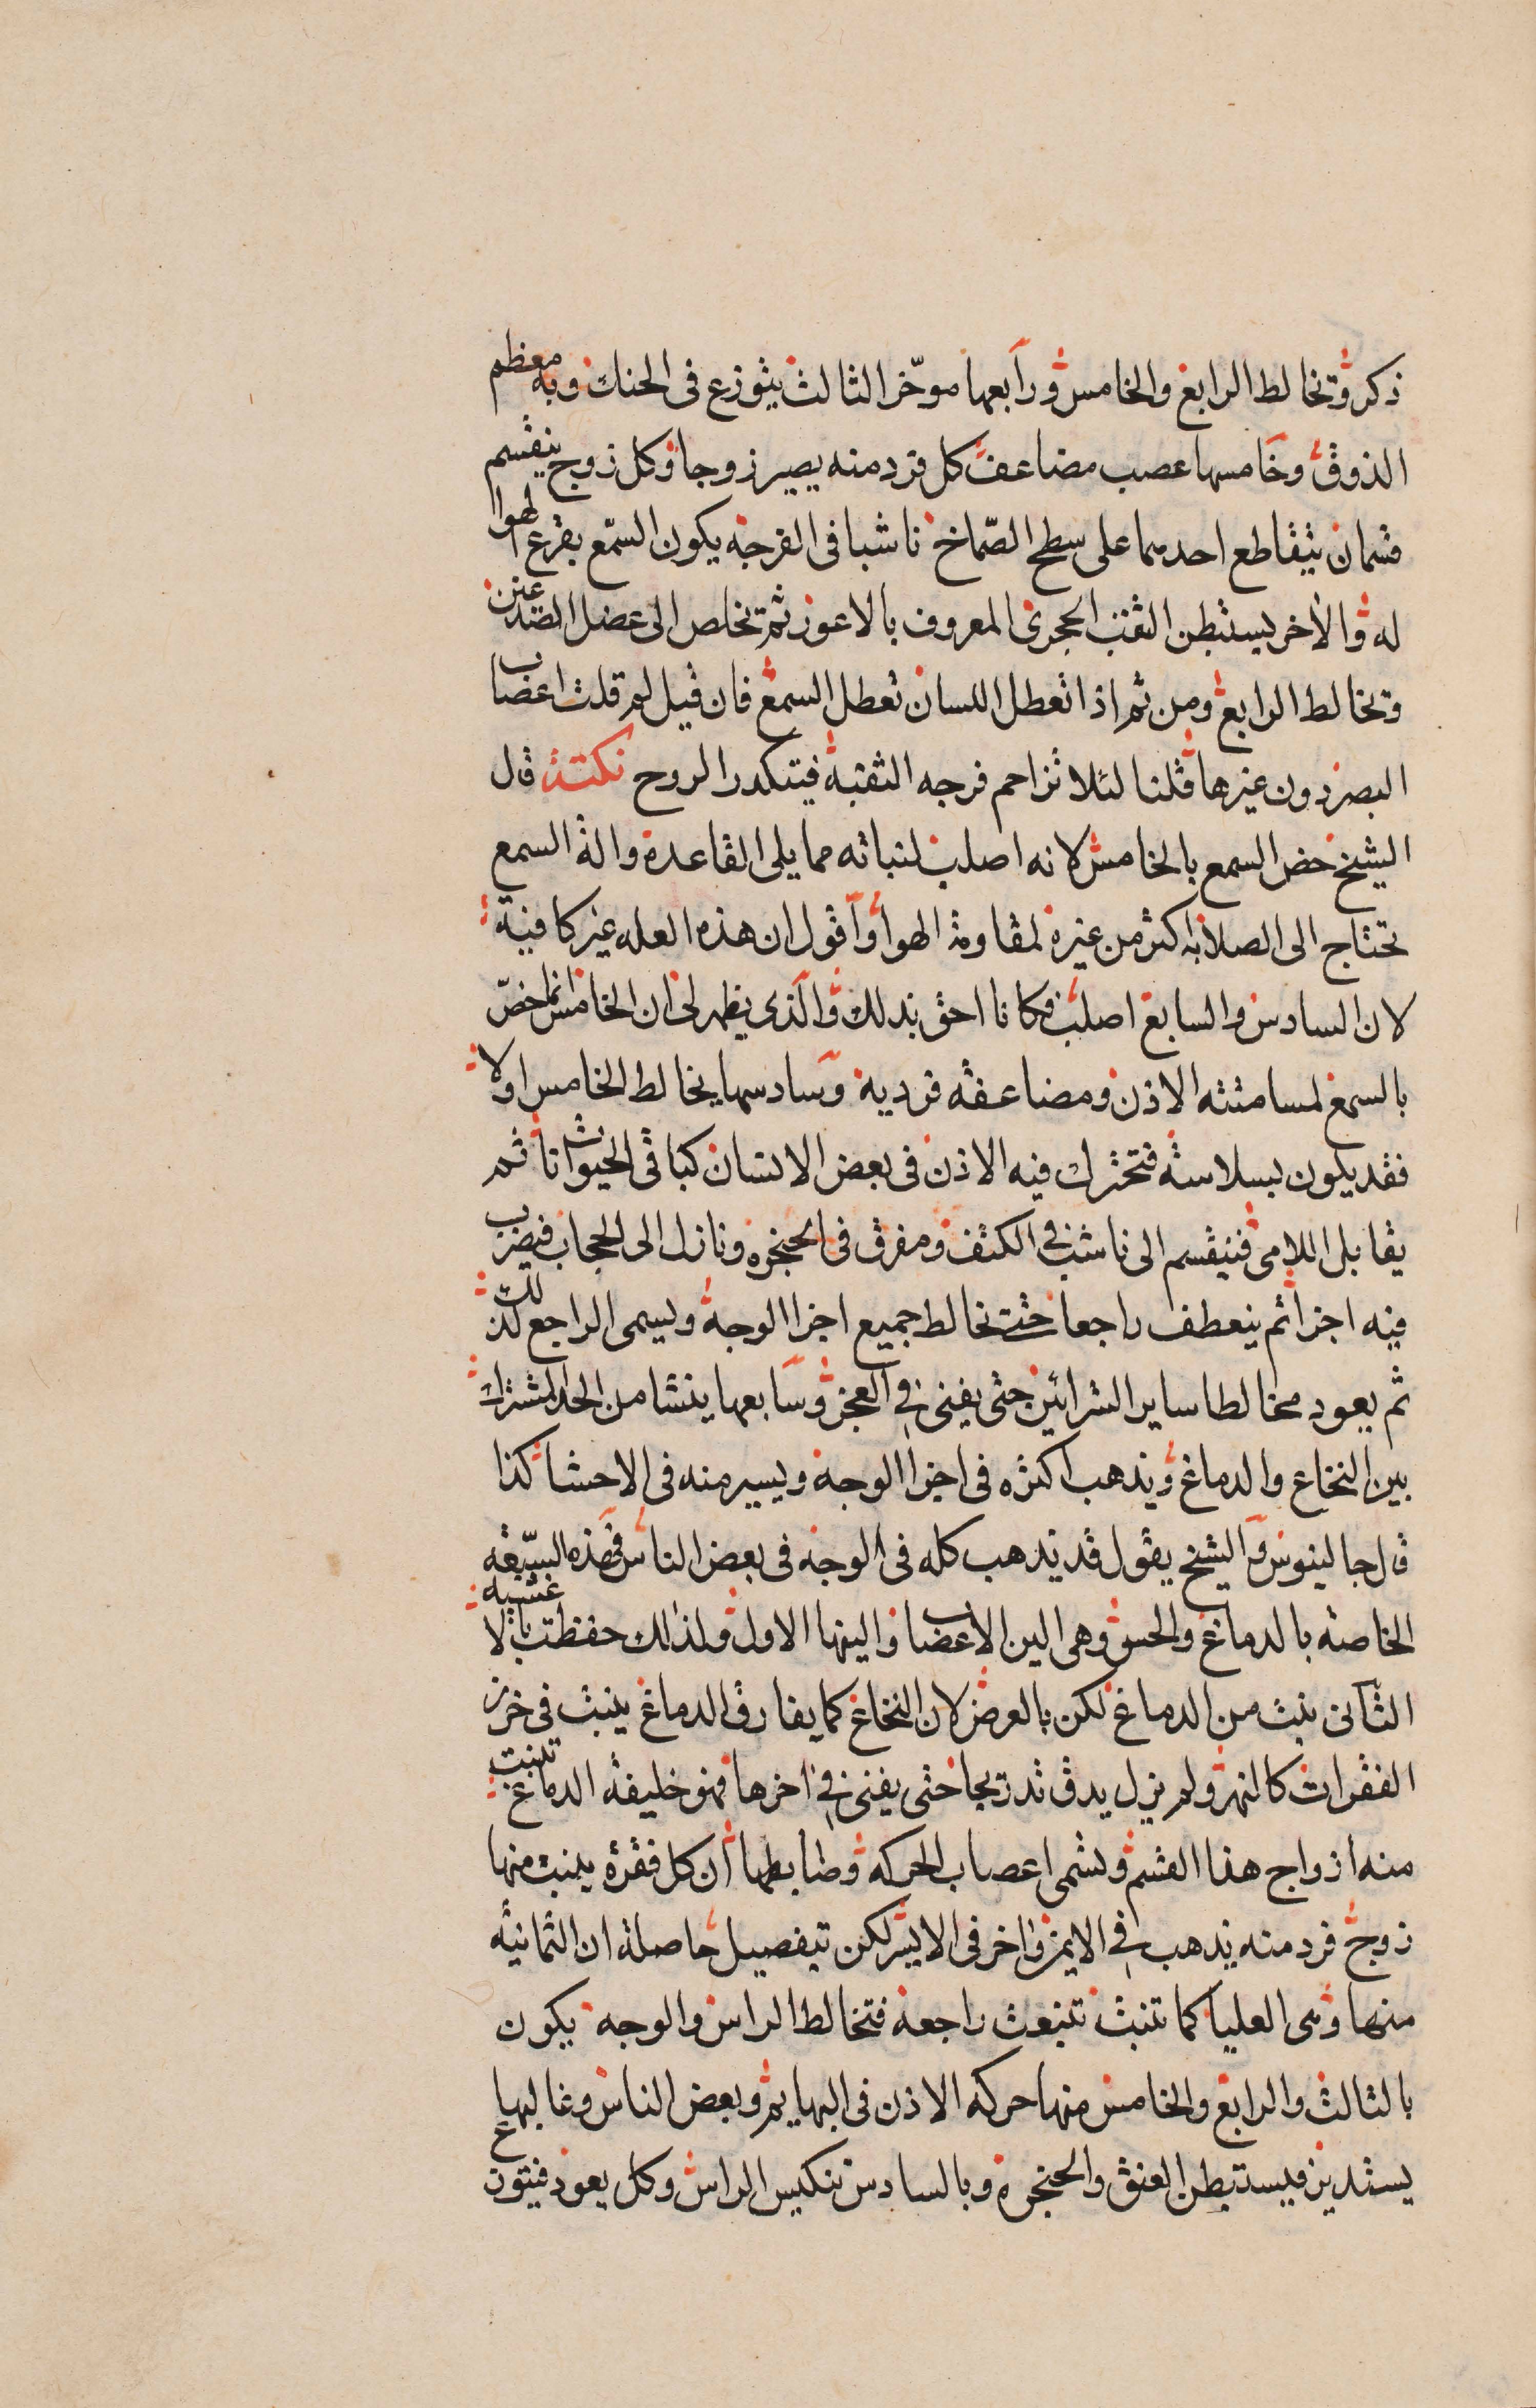 ذكر وتخالط الرابع والخامس ورابعها موخّر الثالث يتوزع فى الحنك وبه معظم
الذوق وخامسها عصب مضاعف كل فرد منه يصير زوجا وكل زوج ينقسم
قسمان يتقاطع احدهما على سطح الصّماخ ناشبا فى الفرجه يكون السّمع بقرع الهوا
له والاخر يستبطن الثقب الحجرى المعروف بالاعور ثم تخلص الى عضل الصدغين
وتخالط الرابع ومن ثم اذا تعطل اللسان تعطل السمع فان قيل لم قلت اعصاب
البصر دون غيرها قلنا لئلا تزاحم فرجه الثقبة فيتكدر الروح نكتة قال
الشيخ خص السمع بالخامس لانه اصلب لنباته مما يلى القاعدة والة السمع
تحتاج الى الصلابه اكثر من غيره لمقاومة الهوا واقول ان هذه العله غير كافية
لان السادس والسابع اصلب فكانا احق بذلك والذى يظهر لى ان الخامس انما خصّ
بالسمع لمسامتته الاذن ومضاعفه فرديه وسادسها يخالط الخامس اولا
فقد يكون بسلاسته فتحترك فيه الاذن فى بعض الانسان كباقى الحيوانات ثم
يقابل اللامى فينقسم الى ناشب فى الكتف ومفرق فى الحنجره ونازل الى الحجاب فيضرب
فيه اجزا ثم ينعطف راجعا حتى تخالط جميع اجزا الوجه ويسمى الراجع لذلك
ثم يعود مخالطا ساير الشرائين حتى يفنى فى العجز وسابعها ينشا من الحد المشترك
بين النخاع والدماغ ويذهب اكثره فى اجزا الوجه ويسير منه فى الاحشا كذا
قال جالينوس والشيخ يقول قد يذهب كله فى الوجه فى بعض الناس فهذه السبعه
الخاصه بالدماغ والحس وهى الين الاعصاب والينها الاول ولذلك حفظت بالاغشيه
الثانى ينبت من الدماغ لكن بالعرض لان النخاع كما يفارق الدماغ ينبت فى خرز
الفقرات كالنهر ولم يزل يدق تدريجا حتى يفنى فى اخرها فهو خليفه الدماغ تنبت
منه ازواج هذا القسم وتسمى اعصاب الحركه وضابطها ان كل فقرة ينبت منها
زوج فرد منه يذهب فى الايمن واخر فى الايسر لكن تيفصيل حاصلة ان الثمانيه
منها وهى العليا كما تنبت تنبعث راجعة فتخالط الراس والوجه يكون
بالثالث والرابع والخامس منها حركه الاذن فى البهايم وبعض الناس وغالبها
يستدير فيستبطن العنق والحنجره وبالسادس تنكيس الراس وكل يعود